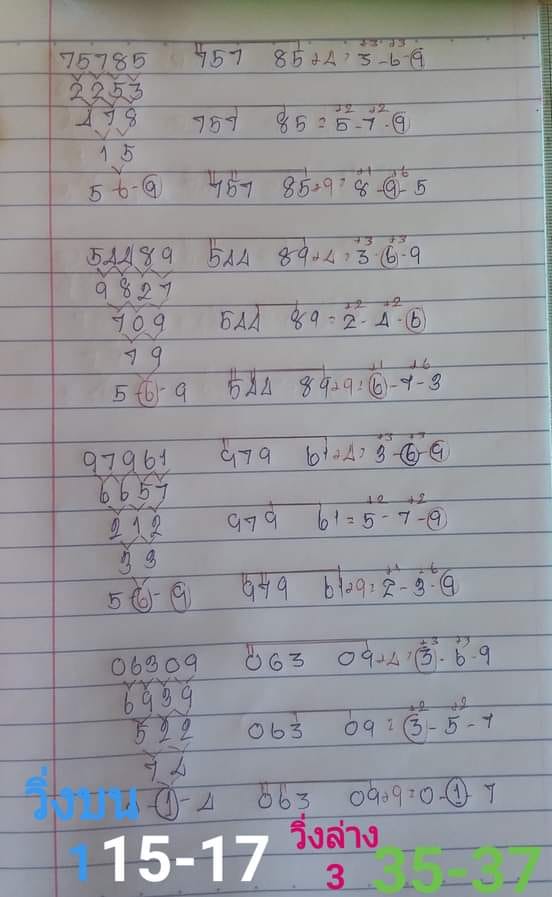 75785 757 85+4=3-6-9
2253
478 757 85=5-7-9
15
5-6-9 757 85+9=8-9-5
54489 544 89+4=3-6-9
9827
709 544 89=2-4-6
79
5-6-9 544 89+9=6-7-3
97961 979 61+4=3-6-9
6657
212 979 61=5-7-9
33
5-6-9 979 61+9=2-3-9
06309 063 09+4=3-6-9
6939
522 063 09=3-5-7
74
-1-4 063 09+9=0-1-7
วิ่งบน วิ่งล่าง
1 15-17 3 35-37